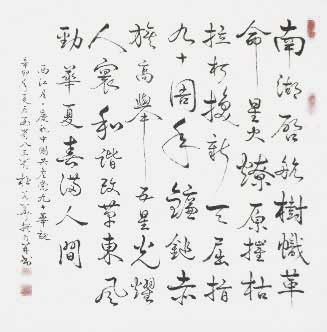 南湖启航树帜革
命星火燎原摧枯
拉朽换新天屈指
九十周年镰锤赤
旗高举五星光耀
人寰和谐改革东风
劲华夏春满人间
西江月庆祝中国共产党九十华诞
辛卯